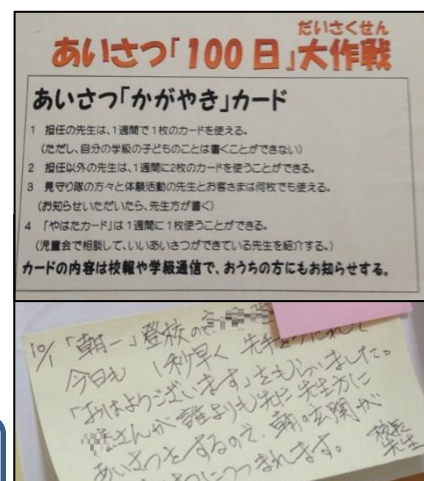 だいさくせん
あいさつ「100日」大作戦
あいさつ「かがやき」カード
1 担任の先生は、1週間で1枚のカードを使える。
(ただし、自分の学級の子どものことは書くことができない)
2 担任以外の先生は、1週間に2枚のカードを使うことができる。
3 見守り隊の方々と体験活動の先生とお客さまは何枚でも使える。
(お知らせいただいたら、先生方が書く)
4 「やはたカード」は1週間に1枚使うことができる。
(児童会で相談して、いいあいさつができている先生を紹介する。)
カードの内容は校報や学級通信で、おうちの方にもお知らせする。
10/1 「朝一」登校の
今日も 1秒早く 先手
「おはようございます」をもらいました。
さんが誰よりも先に先生方に
あいさつをするので、朝の玄関が
につつまれます。
校長先生